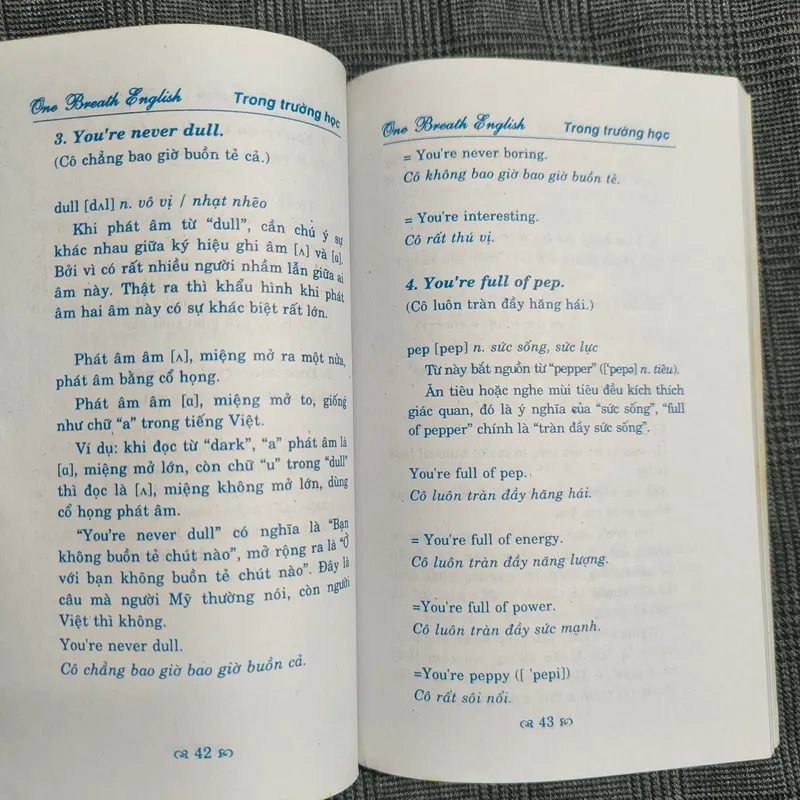 One Breath English Trong trường học
3. You're never dull.
(Cô chẳng bao giờ buồn tẻ cả.)
dull [dʌl] n. vô vị / nhạt nhẽo
Khi phát âm từ “dull”, cần chú ý sự
khác nhau giữa ký hiệu ghi âm [ʌ] và [ɑ].
Bởi vì có rất nhiều người nhầm lẫn giữa ai
âm này. Thật ra thì khẩu hình khi phát
âm hai âm này có sự khác biệt rất lớn.
Phát âm âm [ʌ], miệng mở ra một nửa,
phát âm bằng cổ họng.
Phát âm âm [ɑ], miệng mở to, giống
như chữ “a” trong tiếng Việt.
Ví dụ: khi đọc từ “dark”, “a” phát âm là
[ɑ], miệng mở lớn, còn chữ “u” trong “dull”
thì đọc là [ʌ], miệng không mở lớn, dùng
cổ họng phát âm.
“You're never dull” có nghĩa là “Bạn
không buồn tẻ chút nào”, mở rộng ra là “Ở
với bạn không buồn tẻ chút nào”. Đây là
câu mà người Mỹ thường nói, còn người
Việt thì không.
You're never dull.
Cô chẳng bao giờ bao giờ buồn cả.
42
One Breath English Trong trường học
= You're never boring.
Cô không bao giờ bao giờ buồn tẻ.
= You're interesting.
Cô rất thú vị.
4. You're full of pep.
(Cô luôn tràn đầy hăng hái.)
pep [pep] n. sức sống, sức lực
Từ này bắt nguồn từ “pepper” (['pepə] n. tiêu).
Ăn tiêu hoặc nghe mùi tiêu đều kích thích
giác quan, đó là ý nghĩa của “sức sống”, “full
of pepper” chính là “tràn đầy sức sống”.
You're full of pep.
Cô luôn tràn đầy hăng hái.
= You're full of energy.
Cô luôn tràn đầy năng lượng.
=You're full of power.
Cô luôn tràn đầy sức mạnh.
=You're peppy ([ 'pepi])
Cô rất sôi nổi.
43